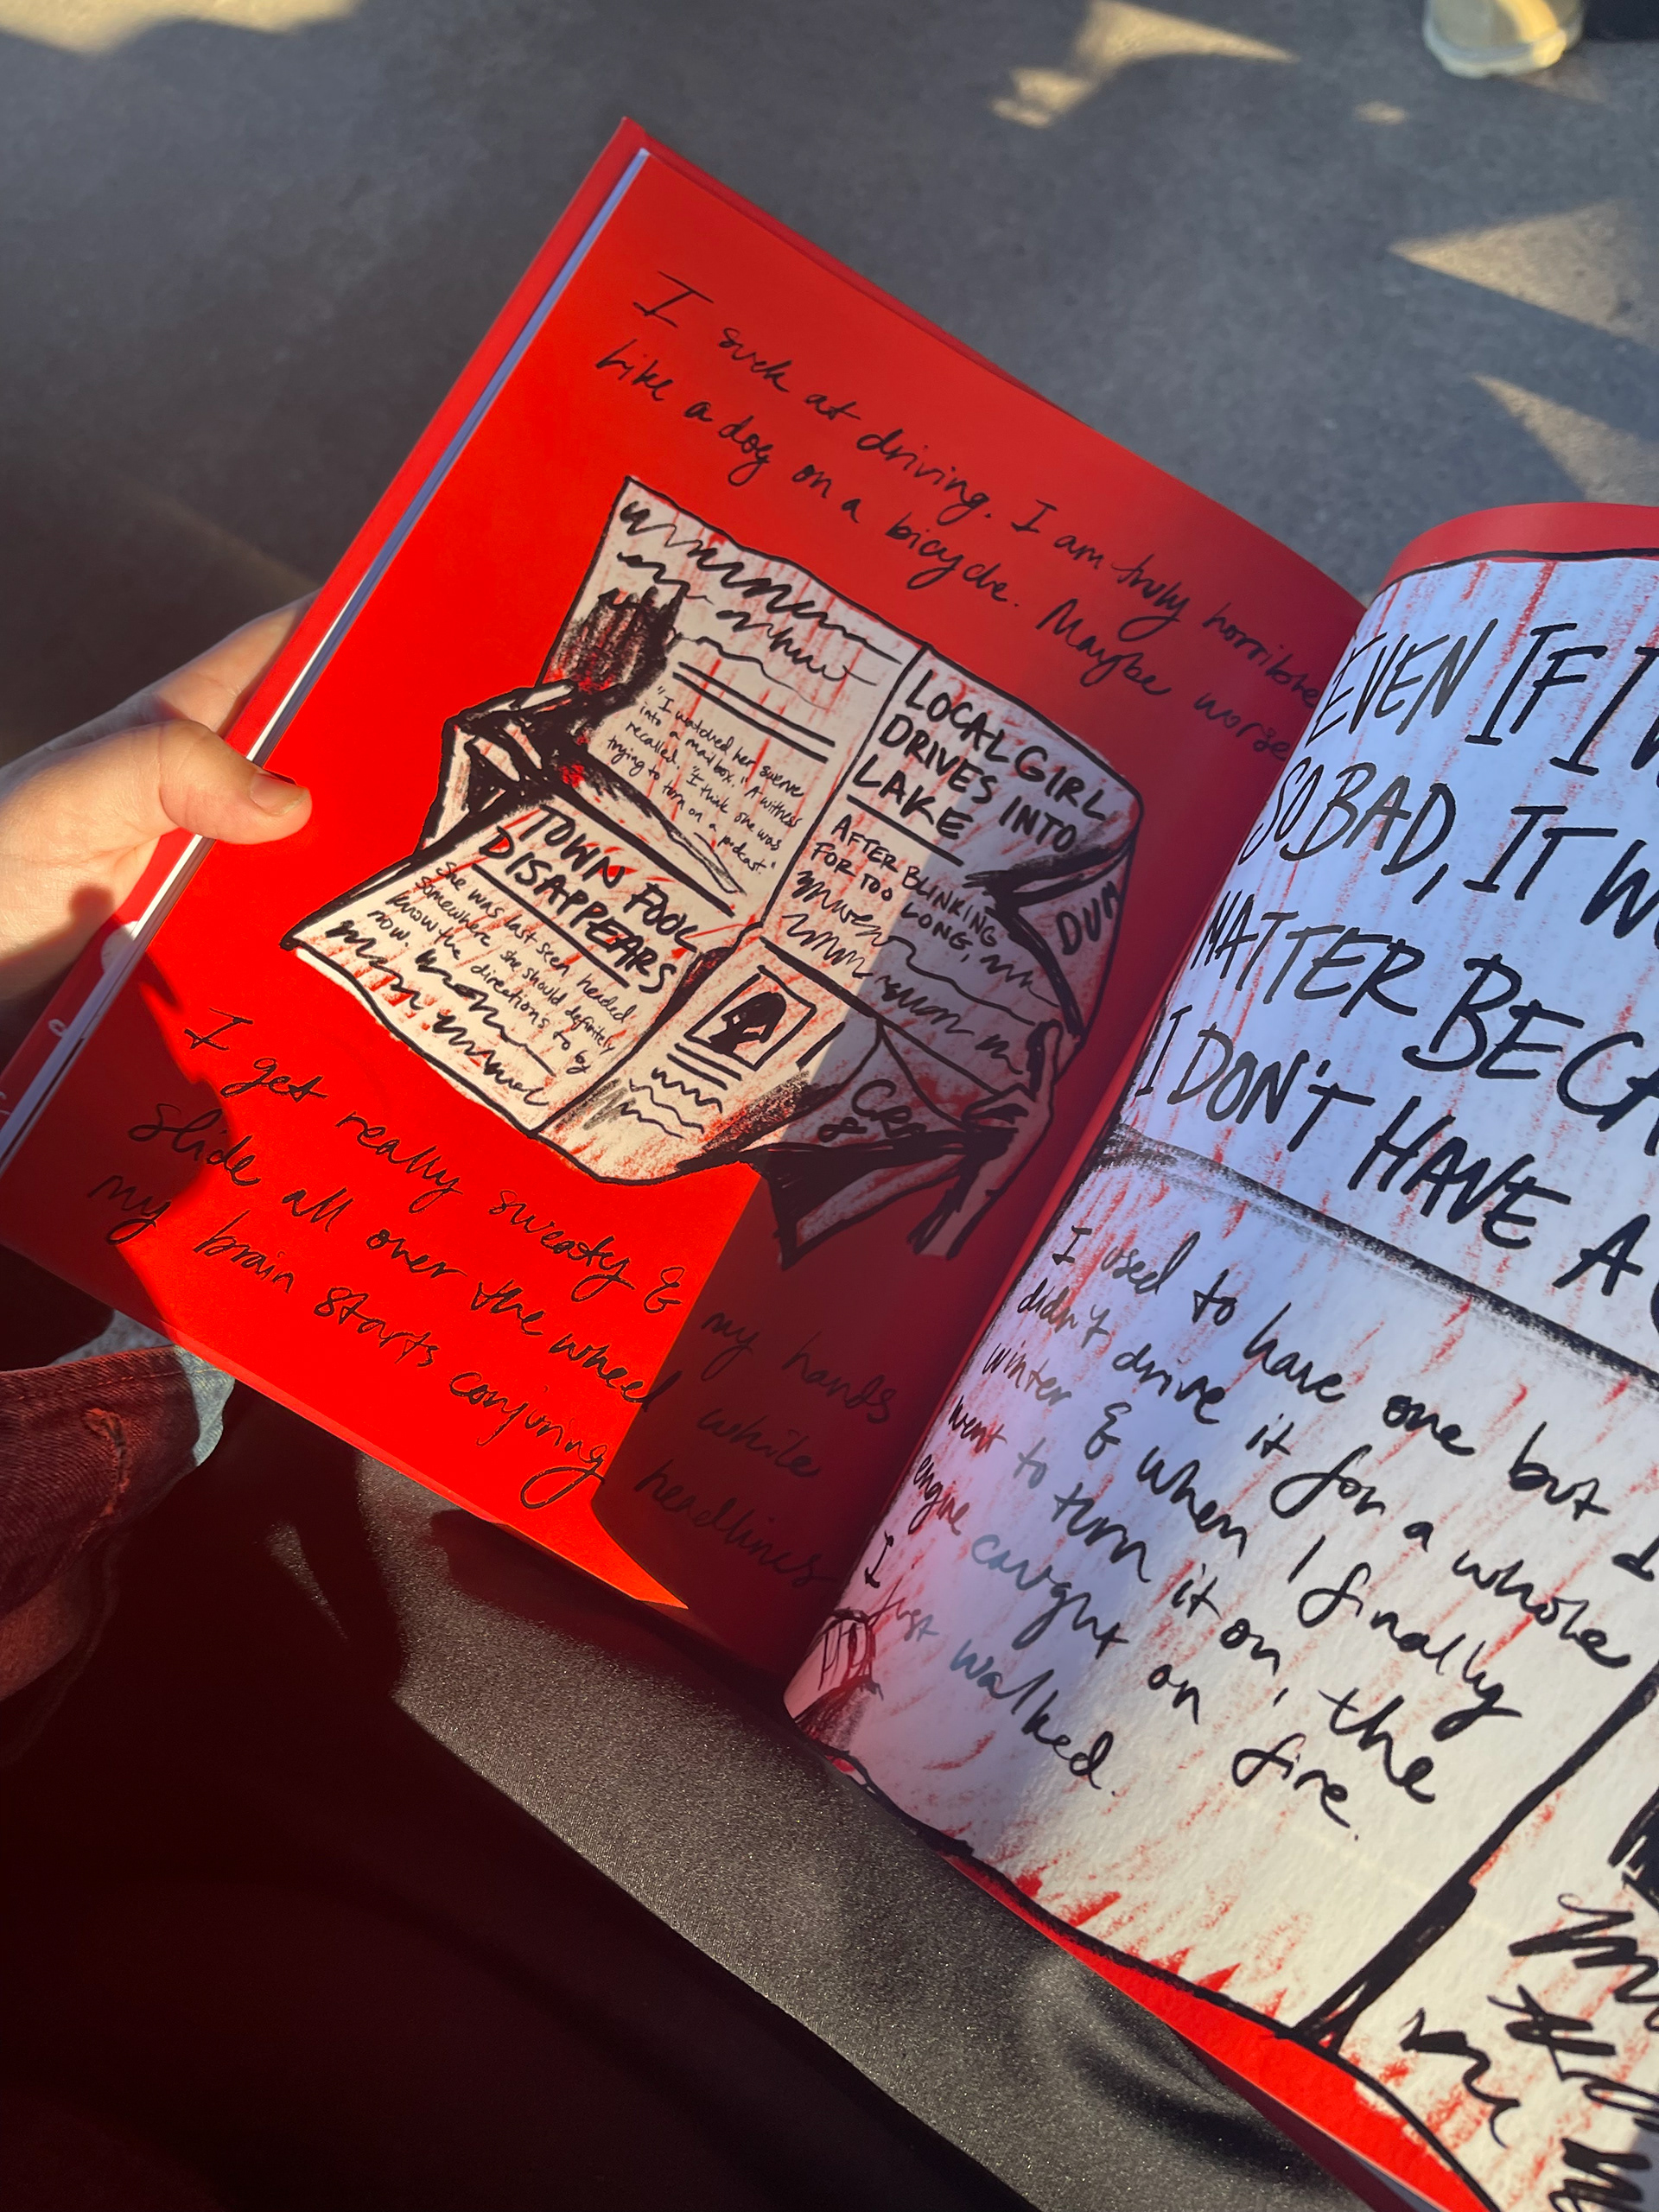 I suck at driving. I am truly horrible.
Like a dog on a bicycle. Maybe worse
"I watched her swerve
into a mailbox," A witness
recalled. "I think she was
trying to turn on a podcast."
TOWN FOOL
DISAPPEARS
She was last seen headed
somewhere she should definitely
know the directions to by
now.
LOCAL GIRL
DRIVES INTO
LAKE
AFTER BLINKING
FOR TOO LONG,
DUM
I get really sweaty & my hands
slide all over the wheel while
my brain starts conjuring headlines
EVEN IF I
SO BAD, IT
MATTER
I DON'T HAVE A
I used to have one but I
didn't drive it for a whole
winter & when I finally
went to turn it on, the
engine caught on fire.
I just walked.